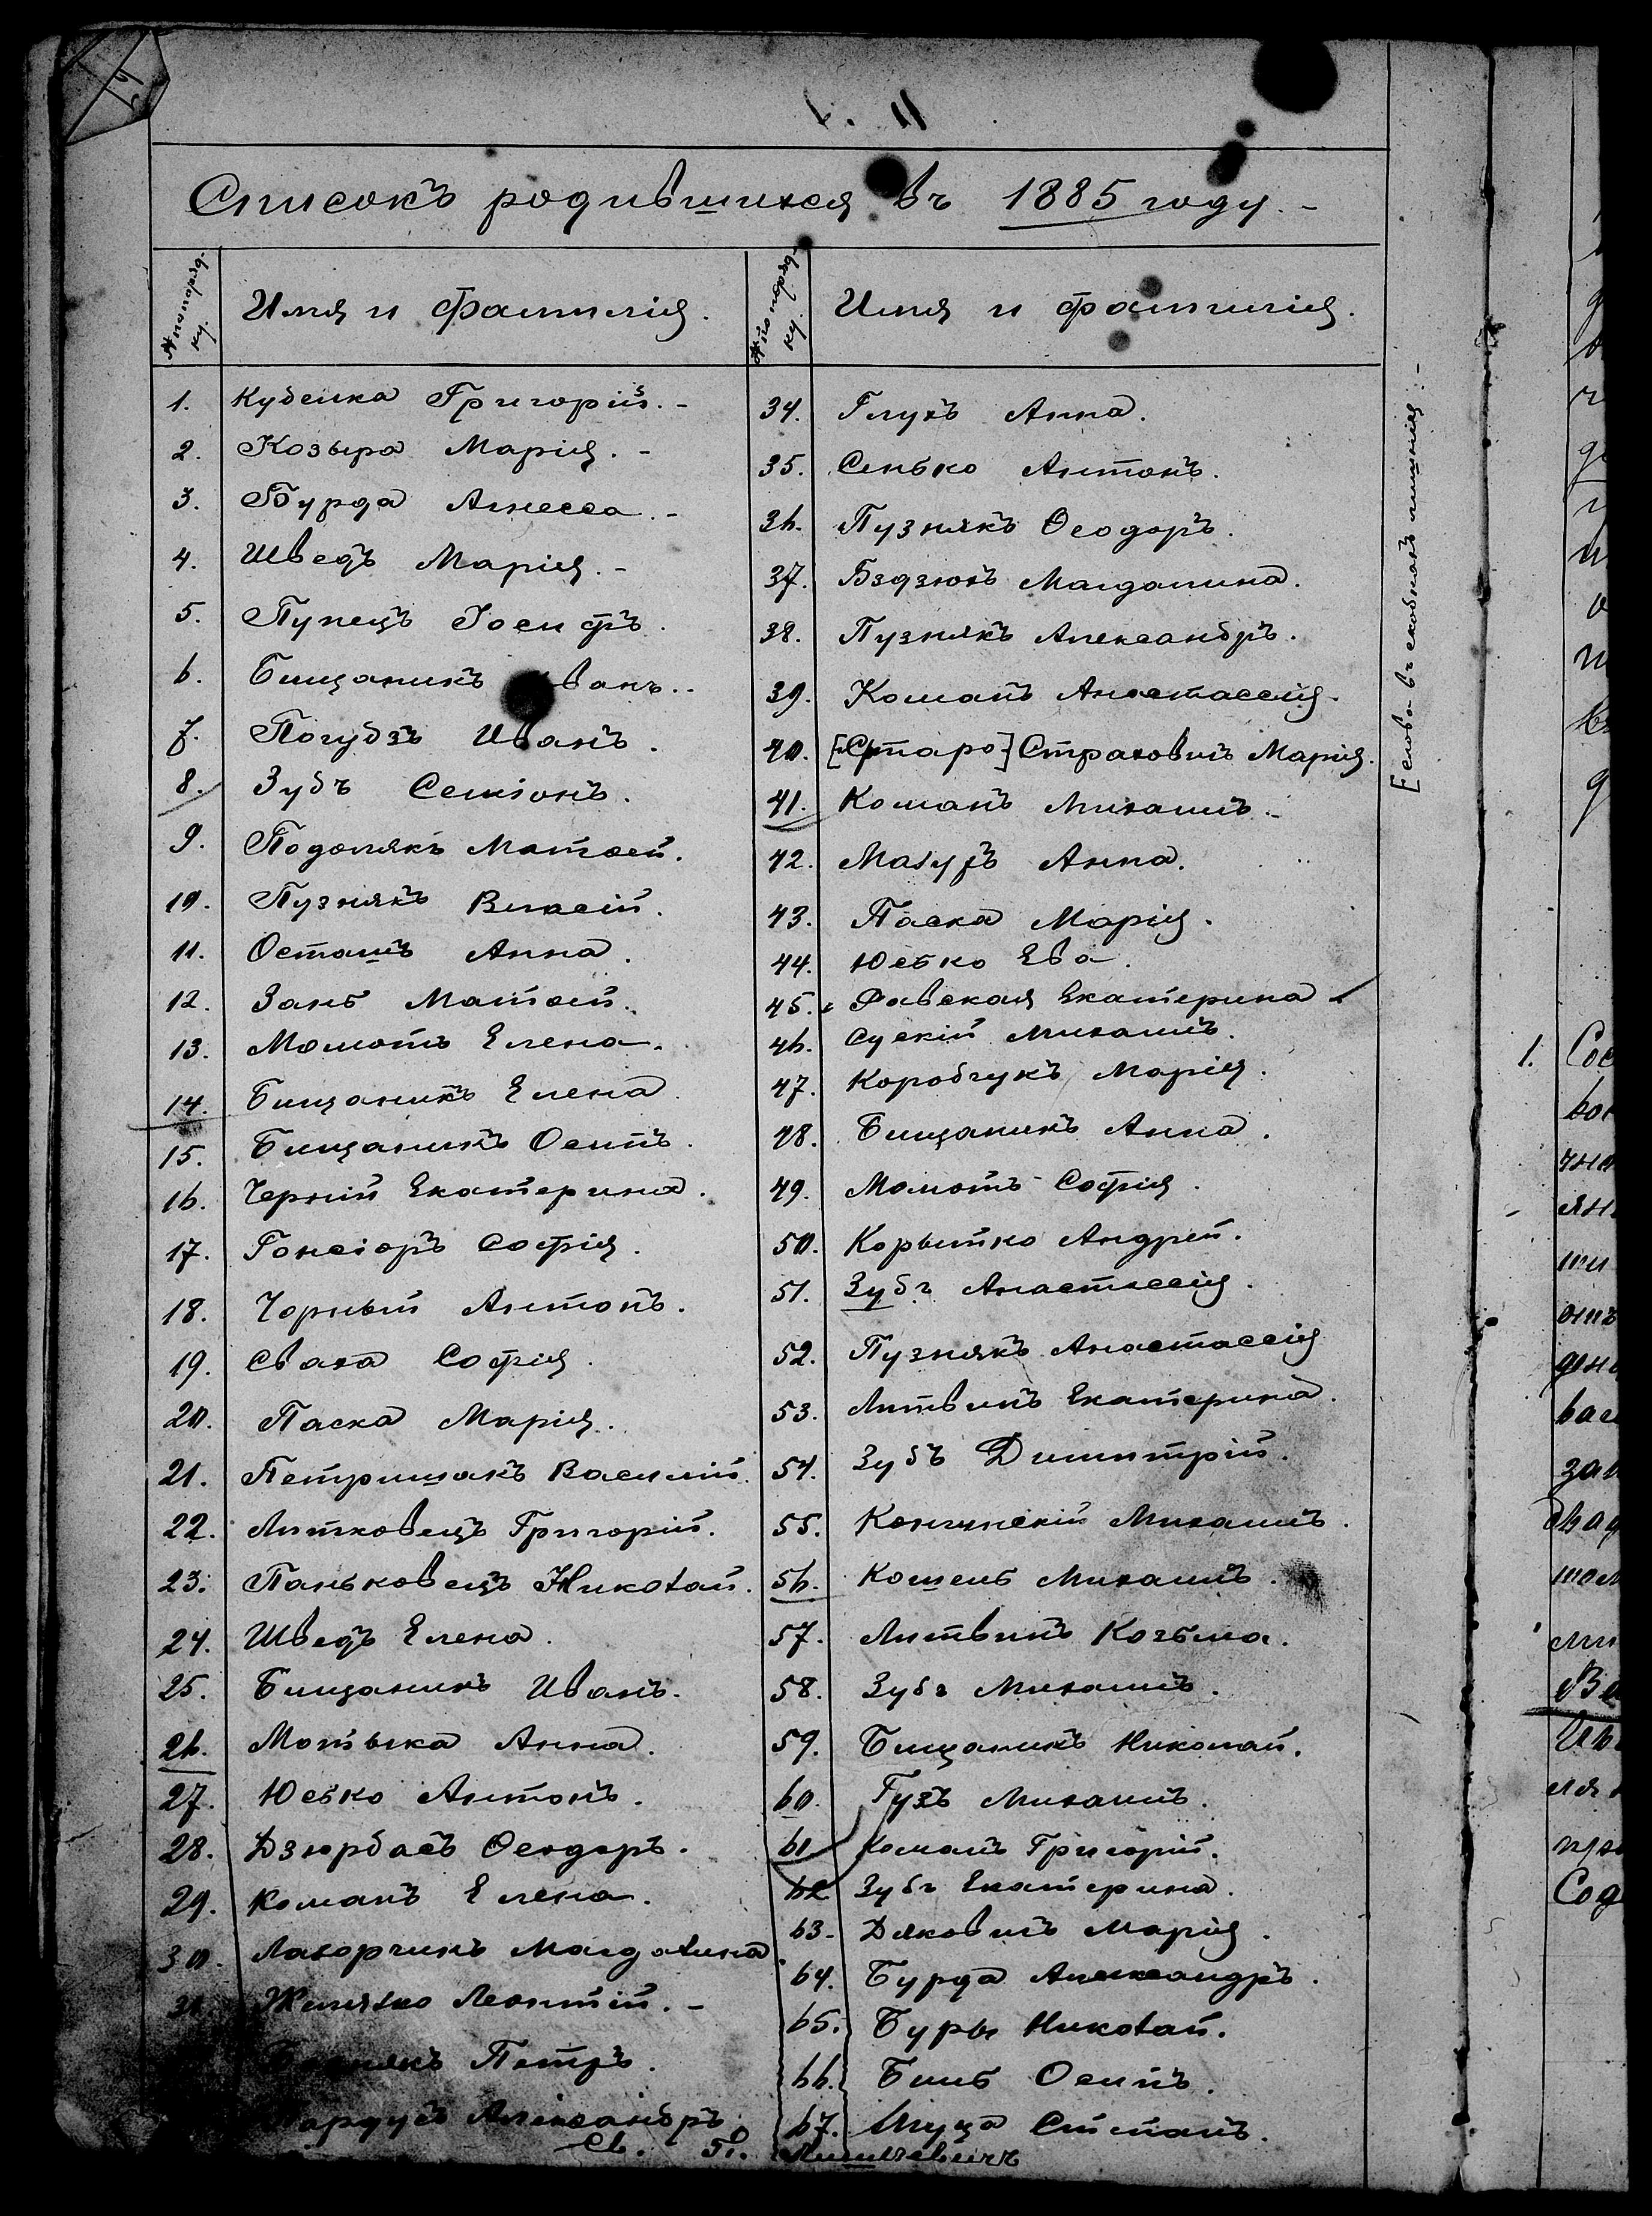 Списокъ родившихся въ 1885 году. -
№ по поряд-
ку.
Имя и фамилія.
№ по поряд-
ку.
Имя и фамилія.
1. Кубейка Григорій. -
2. Козыра Марія. -
3. Бурда Агнесса. -
4. Шведъ Марія. -
5. Пупецъ Іосифъ.
6. Бищаникъ ванъ. -
7. Погудзъ Иванъ.
8. Зубъ Семіонъ.
9. Подолякъ Матѳей.
10. Пузнякъ Власій.
11. Осташъ Анна.
12. Зань Матѳей.
13. Момотъ Елена.
14. Бищаникъ Елена.
15. Бищаникъ Осипъ.
16. Черній Екатерина.
17. Гонсіоръ Софія.
18. Чорный Антонъ.
19. Сваха Софія.
20. Паска Марія.
21. Петришакъ Василій.
22. Литковецъ Григорій.
23. Паньковецъ Николай.
24. Шведъ Елена.
25. Бищаникъ Иванъ.
26. Мотыка Анна.
27. Юсько Антонъ.
28. Дзюрбасъ Ѳеодоръ.
29. Команъ Елена.
30. Лахорчикъ Магдалина
31. Леонтій. -
Петръ.
Александръ
34. Глухъ Анна.
35. Сенько Антонъ.
36. Пузнякъ Ѳеодоръ.
37. Бздзюхъ Магдалина.
38. Пузнякъ Александръ.
39. Команъ Анастассія.
40. [Старо] Страховичъ Марія.
41. Команъ Михаилъ. -
42. Мазуръ Анна.
43. Паска Марія.
44. Юсько Ева.
45. Равская Екатерина
46. Сускій Михаилъ.
47. Коробчукъ Марія.
48. Бищаникъ Анна.
49. Момотъ Софія.
50. Корытко Андрей.
51. Зубъ Анастассія.
52. Пузнякъ Анастассія
53. Литвинъ Екатерина.
54. Зубъ Димитрій.
55. Кончинскій Михаилъ.
56. Кошель Михаилъ.
57. Литвинъ Козьма.
58. Зубъ Михаилъ.
59. Бищаникъ Николай.
60. Гузъ Михаилъ.
61 Команъ Григорій.
62 Зубъ Екатерина.
63. Дяковичъ Марія.
64. Бурда Александръ.
65. Буры Николай.
66. Биль Осипъ.
67. Муца Степанъ.
Св. П.
[слова въ скобкахъ лишнія. -